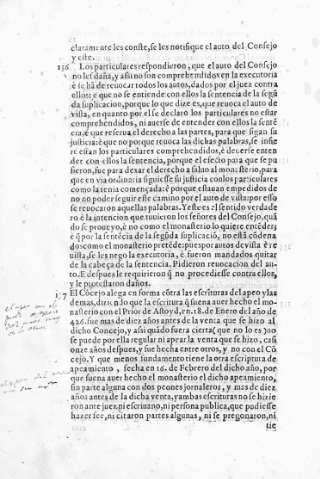 claramente les conste, se les notifique el auto del Consejo
y este.
156 Los particulares respondieron, que el auto del Consejo
no les daña, y assi no son comprehendidos en la executoria
é se há de reuocar todos los autos, dados por el juez contra
ellos: é que no se entiende con ellos la sentencia de la segũ
da suplicacion, porque lo que dize es, que reuoca el auto de
vista, en quanto por el se declaró los particulares no estar
comprehendidos, ni auerse de entender con ellos la sentẽ
cia: é que reserua el derecho a las partes, para que sigan su
justicia: é que no porque reuoca las dichas palabras, se infie
re estan los particulares comprehendidos, é deuerse enten
der con ellos la sentencia, porque el efecto para que se pu
sieron, fue para dexar el derecho a saluo al monasterio, para
que en via ordinaria siguiesse su justicia con los particulares
como la tenia començada: é porque estauan empedidos de
no en poder seguir este camino por el auto de vista, por esso
se reuocaron aquellas palabras. Y este es el sentido verdade
ro é la intencion que tuuieron los señores del Consejo, quã
do se proueyó, é no como el monasterio lo quiere entẽder;
é q̃ por la sentẽcia de la segũda suplicació, no está códena
dos como el monasterio pretẽde: pues por autos de vista é re
uista, se les nego la executoria, é fueron mandados quitar
de la cabeça de la sentencia. Pidieron reuocacion del au-
to. E despues le requirieron q̃ no procediesse contra ellos,
y le protestaron daños.
157 El Cõcejo alega en forma cõtra las escrituras del apeo y las
demas, dizien lo que la escritura q̃ suena auer hecho el mo-
nasterio con el Prior de Astoyd, en 18. de Enero del año de
426. fue mas de diez años antes de la venta que se hizo al
dicho Concejo, y assi quãdo fuera cierta( que no lo es) no
se puede por ella regular ni apear la venta que se hizo, casi
onze años despues, y fue hecha entre otros, y no con el Cõ
cejo. Y que menos fundamento tiene la otra escritura de
apeamiento, fecha en 16. de Febrero del dicho año, por
que suena auer hecho el monasterio el dicho apeamiento,
sin parte alguna con dos peones jornaleros, y mas de diez
años antes de la dicha venta, y ambas escrituras no se hizie
ron ante juez, ni escriuano, ni persona publica, que pudiesse
hazer fee, ni citaron partes algunas, ni se pregonaron, ni